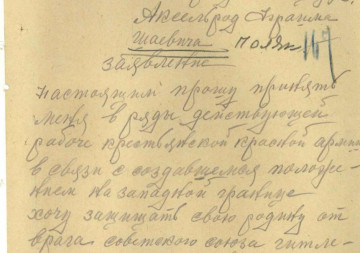 Аксельрод Абрама
Шаевича
заявление
Настоящим прошу принять
меня в ряды действующей
рабоче крестьянской красной армии
в связи с создавшемся положе-
нием на западной границе
хочу защищать свою родину от
врага советского союза гитле-